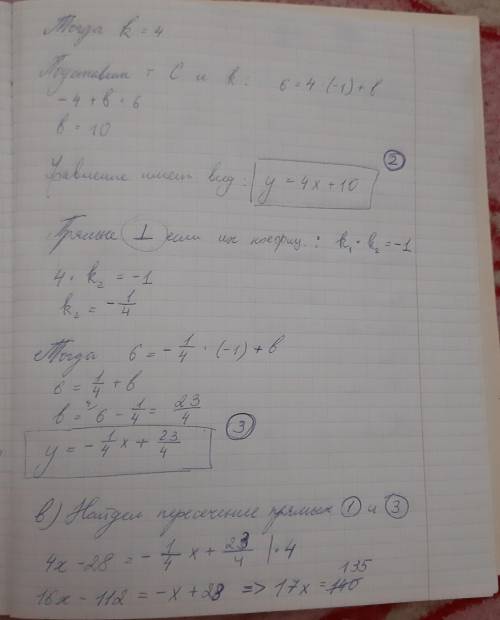 Тогда k = 4
Подставим т C и k : 6 = 4 · (-1) + b
-4 + b = 6
b = 10
②
Уравнение имеет вид : y = 4x + 10
Прямые ⊥ если их коэфиц. : k₁ · k₂ = -1
4 · k₂ = -1
k₂ = -1/4
Тогда 6 = -1/4 · (-1) + b
6 = 1/4 + b
b = 6 - 1/4 = 23/4
③
y = -1/4 x + 23/4
в) Найдем пересечение прямых ① и ③
4x - 28 = -1/4 x + 23/4 | · 4
135
16x - 112 = -x + 23 => 17x =